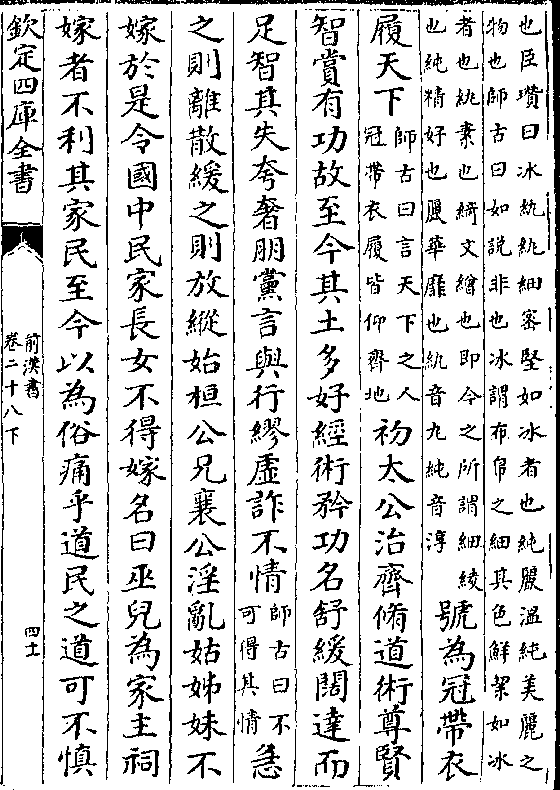 也臣瓚曰冰紈紈細密堅如冰者也純麗溫純美麗之
物也師古曰如說非也冰謂布帛之細其色鮮絜如冰
者也紈素也綺文繒也即今之所謂細綾
也純精好也麗華靡也紈音丸純音淳
號為冠帶衣
履天下
師古曰言天下之人
冠帶衣履皆仰齊地
初太公治齊脩道術尊賢
智賞有功故至今其土多好經術矜功名舒緩闊達而
足智其失夸奢朋黨言與行繆虛詐不情
師古曰不
可得其情
急
之則離散緩之則放縱始桓公兄襄公淫亂姑姊妹不
嫁於是令國中民家長女不得嫁名曰巫兒為家主祠
嫁者不利其家民至今以為俗痛乎道民之道可不慎
欽定四庫全書
前漢書
卷二十八下